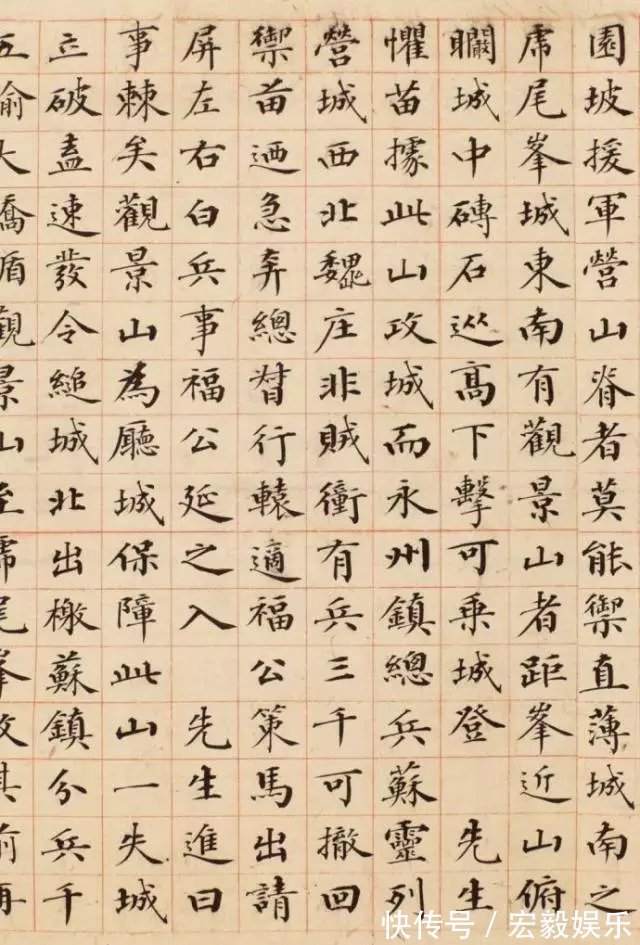 園坡援軍營山脊者莫能禦直薄城南之
虎尾峯城東南有觀景山者距峯近山俯
矙城中磚石從高下擊可乘城登 先生
懼苗據此山攻城而永州鎮總兵蘇靈列
營城西北魏庄非賊衝有兵三千可撤回
禦苗迺急奔總督行轅適福公策馬出請
屏左右白兵事福公延之入 先生進曰
事棘矣觀景山為廳城保障此山一失城
立破盍速發令縋城北出檄蘇鎮分兵千
五大觀景山至虎尾峯攻其前再
快传号/宏毅娱乐